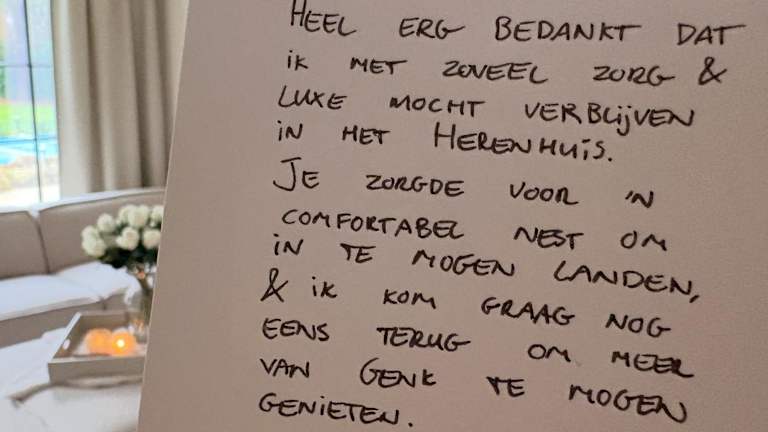 HEEL ERG BEDANKT DAT
ik MET ZOVEEL ZORG &
LUXE MOCHT VERBLijVEN
iN HET HERENHUiS.
JE ZORGDE VOOR 'N
COMFORTABEL NEST OM
iN TE MOGEN LANDEN,
& iK KOM GRAAG NOG
EENS TERUG OM MEER
VAN GENK TE MOGEN
GENIETEN.